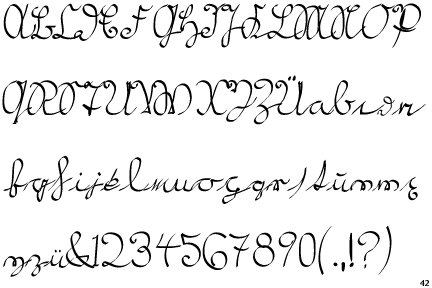 ABCDEFGHIJKLMNOP
QRSTUVWXYZÜabcde
fghijklmnopqrstuvwx
yzü&1234567890(.,!?)
42